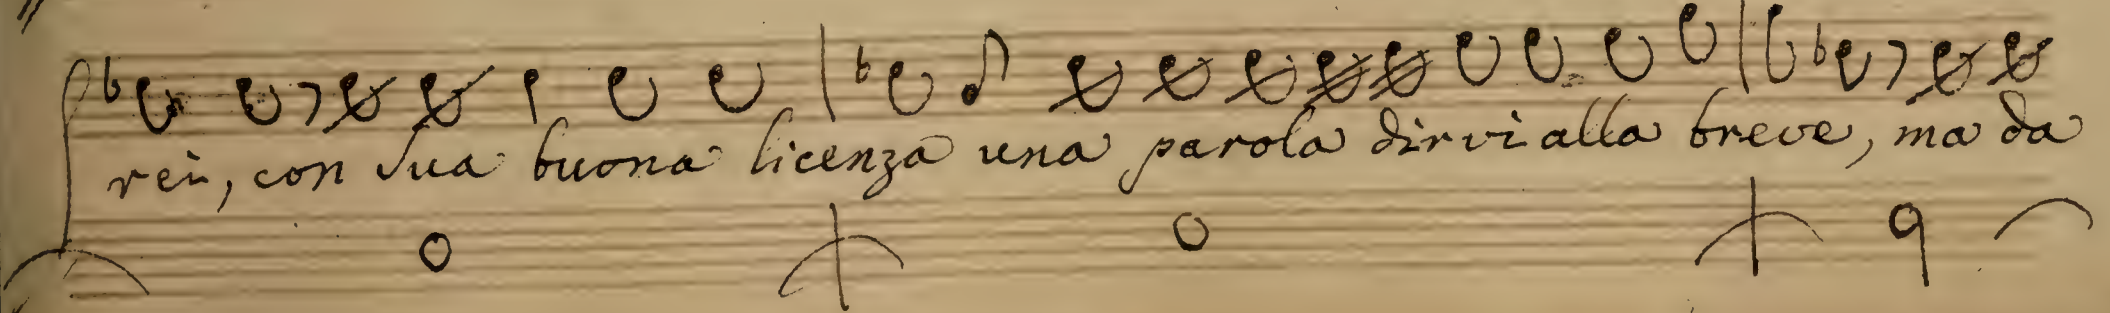 rei, con sua buona licenza una parola dirvi alla breve, ma da